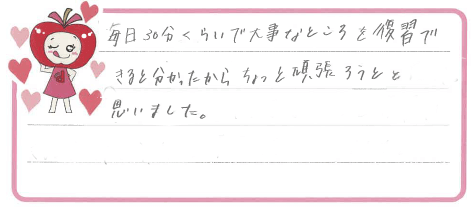 毎日30分くらいで大事なところを復習で
きると分かったからちょっと頑張ろうとと
思いました。